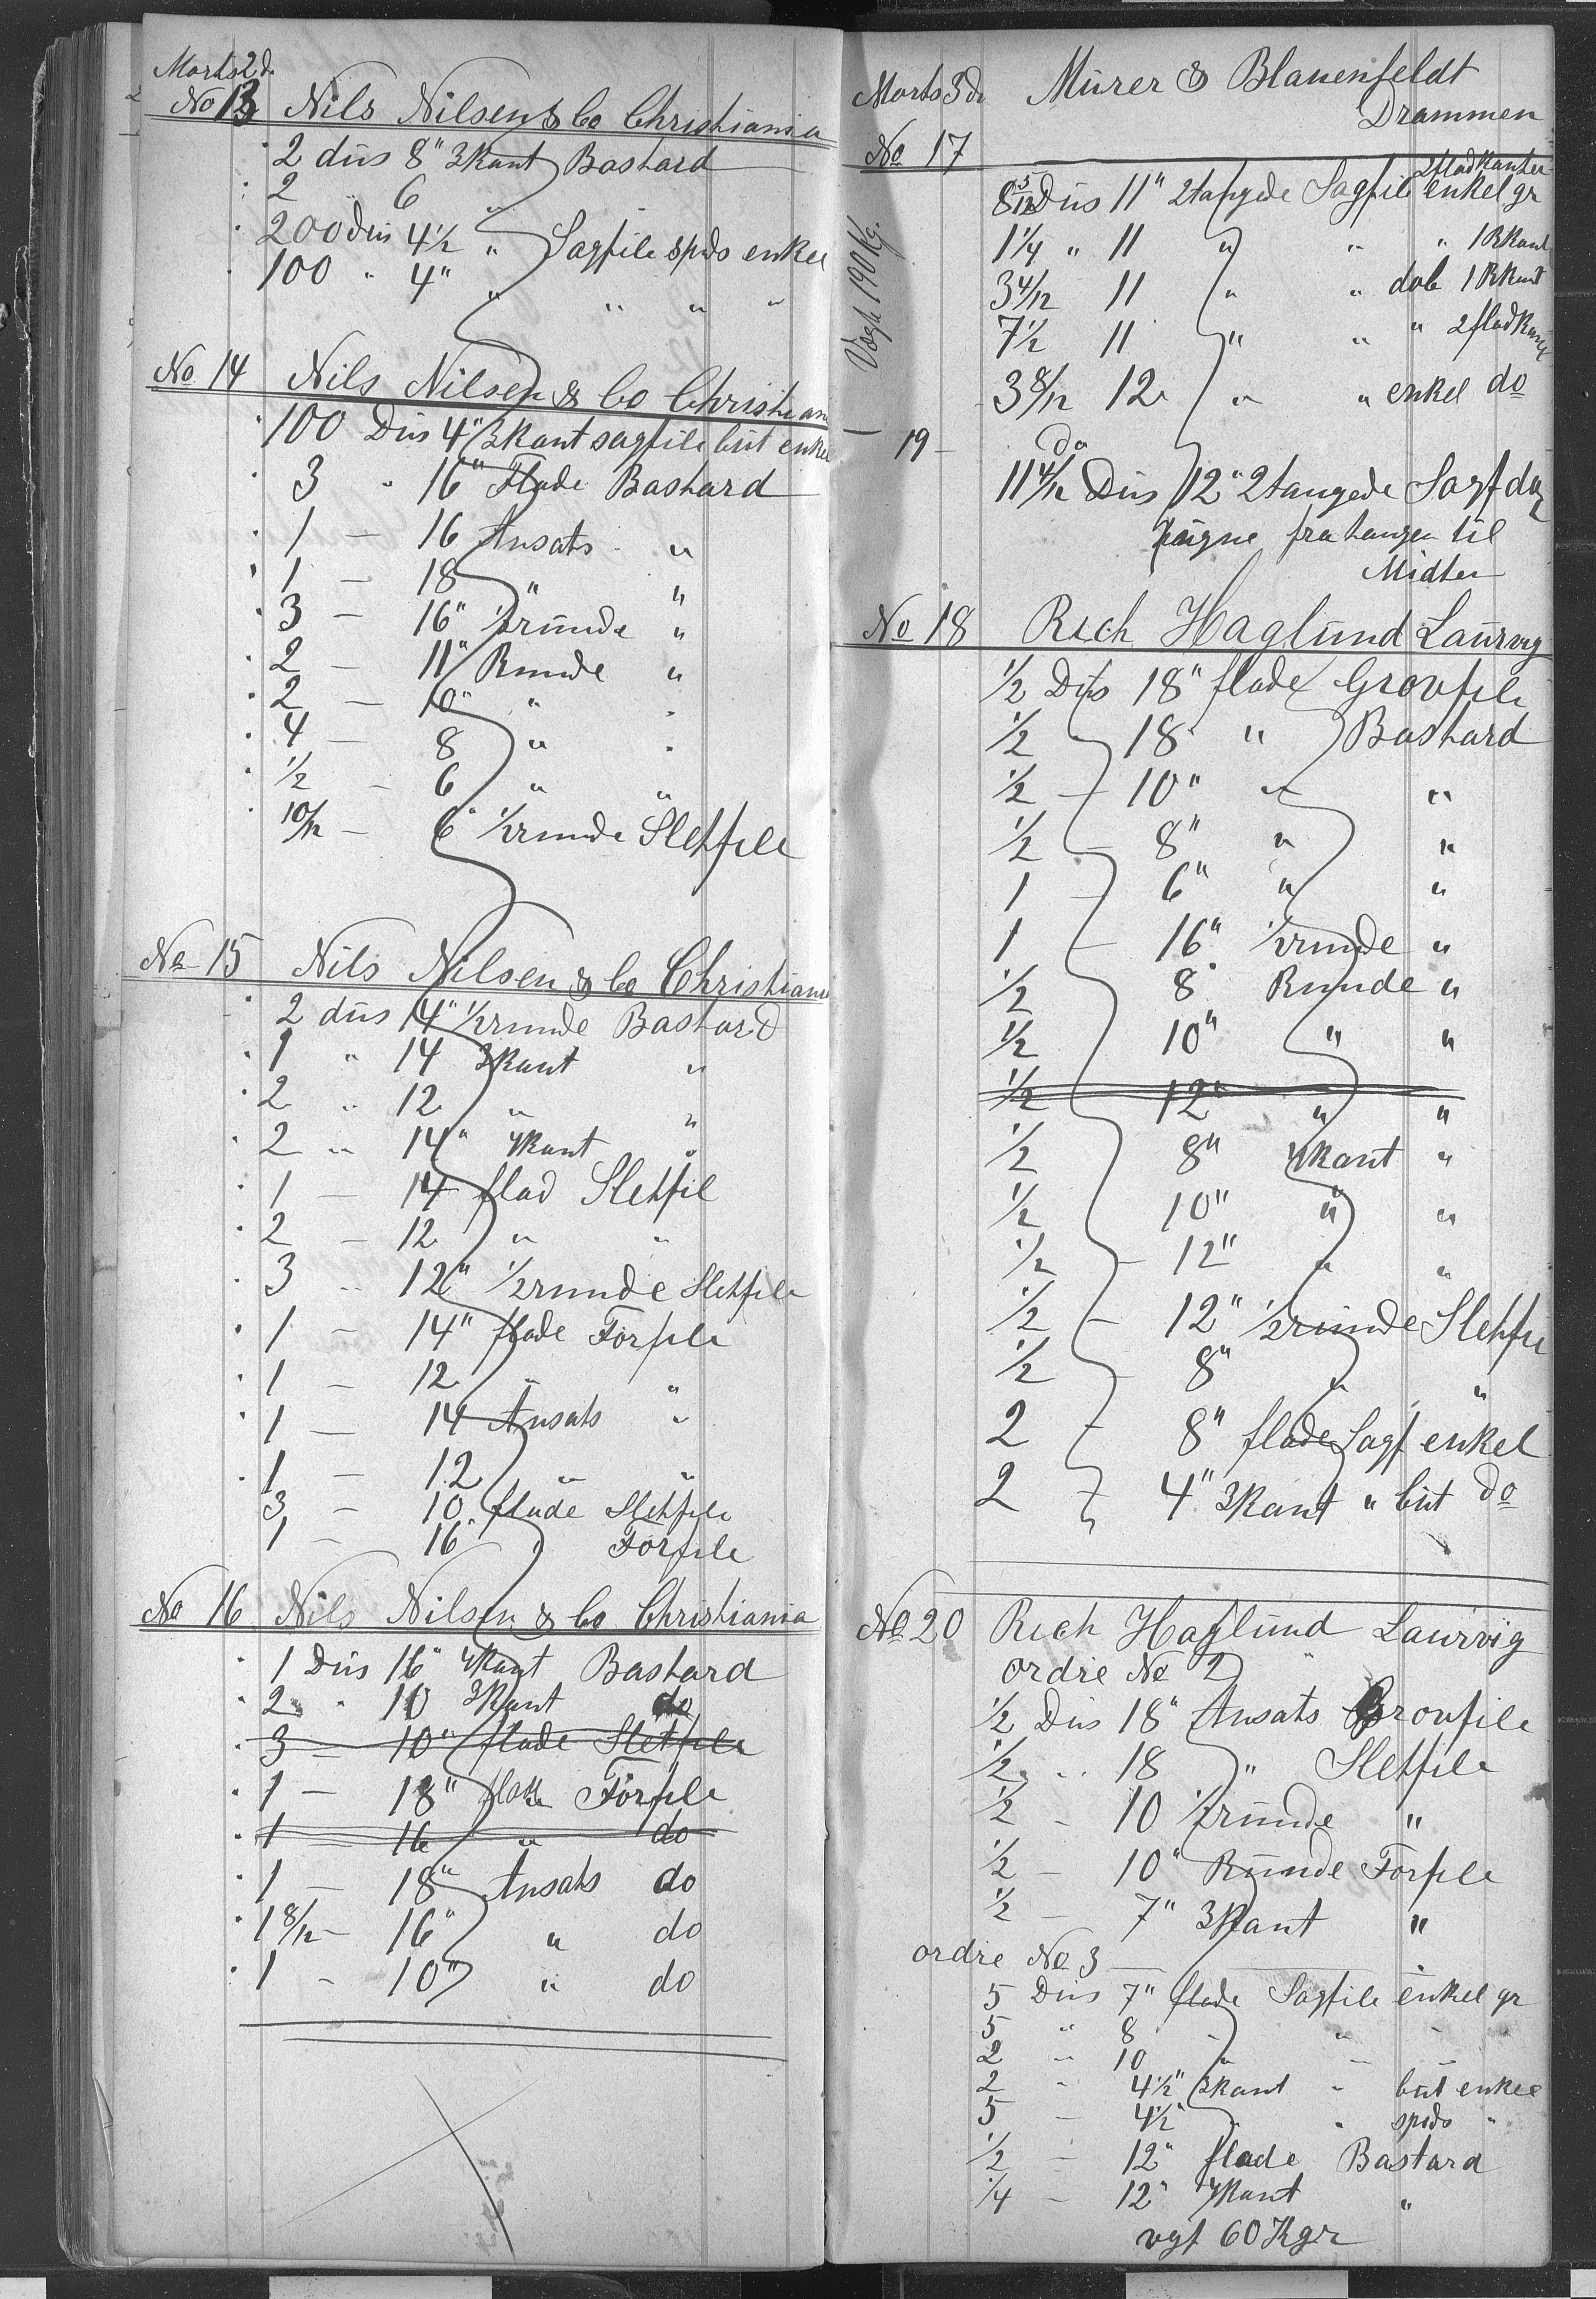 Marts 2d.
No 13 Nils Nilsen & Co Christiania
2 düs 8" 3kant Bastard
2 6 "
200 düs 4½ " Sagfile spids enkel
100 " 4" " " " "
No 14 Nils Nilsen & Co Christiania
100 Düs 4" 3kant sagfile büt enkel
3 " 16" Flade Bastard
1 — 16 Ansats "
1 — 18 " "
3 — 16" ½runde "
2 — 11" Runde "
2 — 10" " "
4 — 8 " "
½ - 6 " "
10/12 — 6" ½runde Sletfile
No 15 Nils Nilsen & Co Christiania
2 düs 14" ½runde Bastard
1 " 14 3kant "
2 " 12 " "
2 " 14" 4kant "
1 — 14 flad Sletfil
2 — 12 " "
3 " 12" ½runde Sletfile
1 — 14" flade Forfile
1 — 12 " "
1 — 14 Ansats "
1 — 12 " "
3 — 10 flade Sletfile
1 — 16 " Forfile
No 16 Nils Nilsen & Co Christiania
1 Düs 16" 4kant Bastard
2 " 10 3kant do
3 — 10" flade Sletfile
1 — 18" flade Forfile
1 16 " do
1 — 18" Ansats do
1 8/12 — 16" " do
1 - 10" " do
Marts 3d. Mürer & Blauenfeldt
Drammen
No 17
2fladkanter
8 5/12 Düs 11" 2tangede Sagfile enkel gr
1¼ " 11 " " " 1 Rkant
3 4/12 11 " " dob 1 Rkant
7½ 11 " " " 2fladkant
3 8/12 12 " " enkel do
Vægt 190 Kg.
19 — do
11 4/12 Düs 12" 2tangede Sagf
fra tangen til
Midten
No 18 Rich Haglünd Laurvig
½ Düs 18" flade Grovfile
½ - 18 " Bastard
½ — 10" " "
½ - 8" " "
1 - 6" " "
1 — 16" ½runde "
½ 8 Runde "
½ 10" " "
½ 12" " "
½ 8" 4kant "
½ 10" " "
½ - 12" " "
½ - 12" ½runde Sletfile
½ - 8" " "
2 - 8" flade Sagf enkel
2 - 4" 3kant " büt do
No 20 Rich Haglünd Laurvig
ordre No 2
½ Düs 18" Ansats Grovfile
½ " 18 " Sletfile
½ - 10 ½runde "
½ — 10" Runde Forfile
½ — 7" 3kant "
ordre No 3
5 Düs 7" flade Sagfile enkel gr
5 " 8 " " "
2 " 10 " " "
2 " 4½" 3kant " büt enkel
5 — 4½" " " spids "
½ — 12" flade Bastard
¼ — 12" 4kant "
vgt 60 Kgr